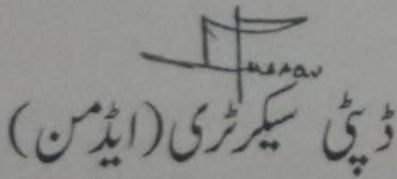 ڈپٹی سیکرٹری (ایڈمن)